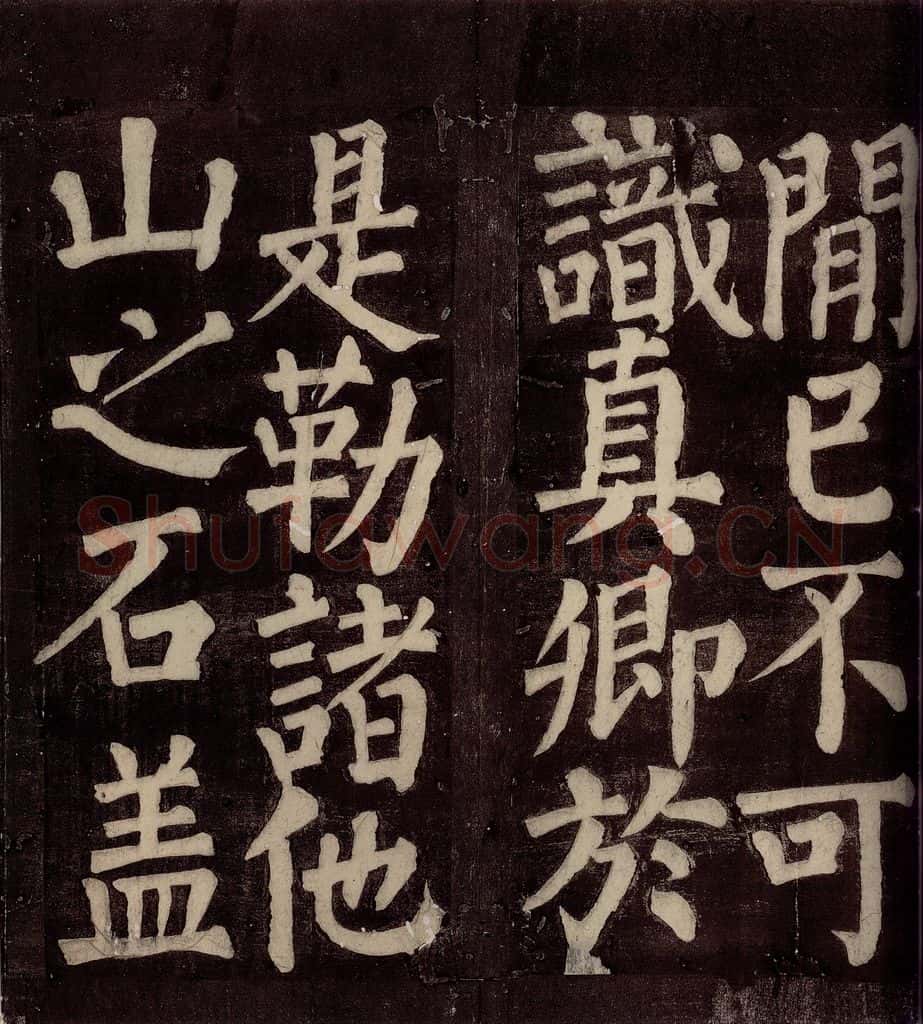 閒已不可
識真卿於
是勒諸他
山之石盖
Shufawang.CN